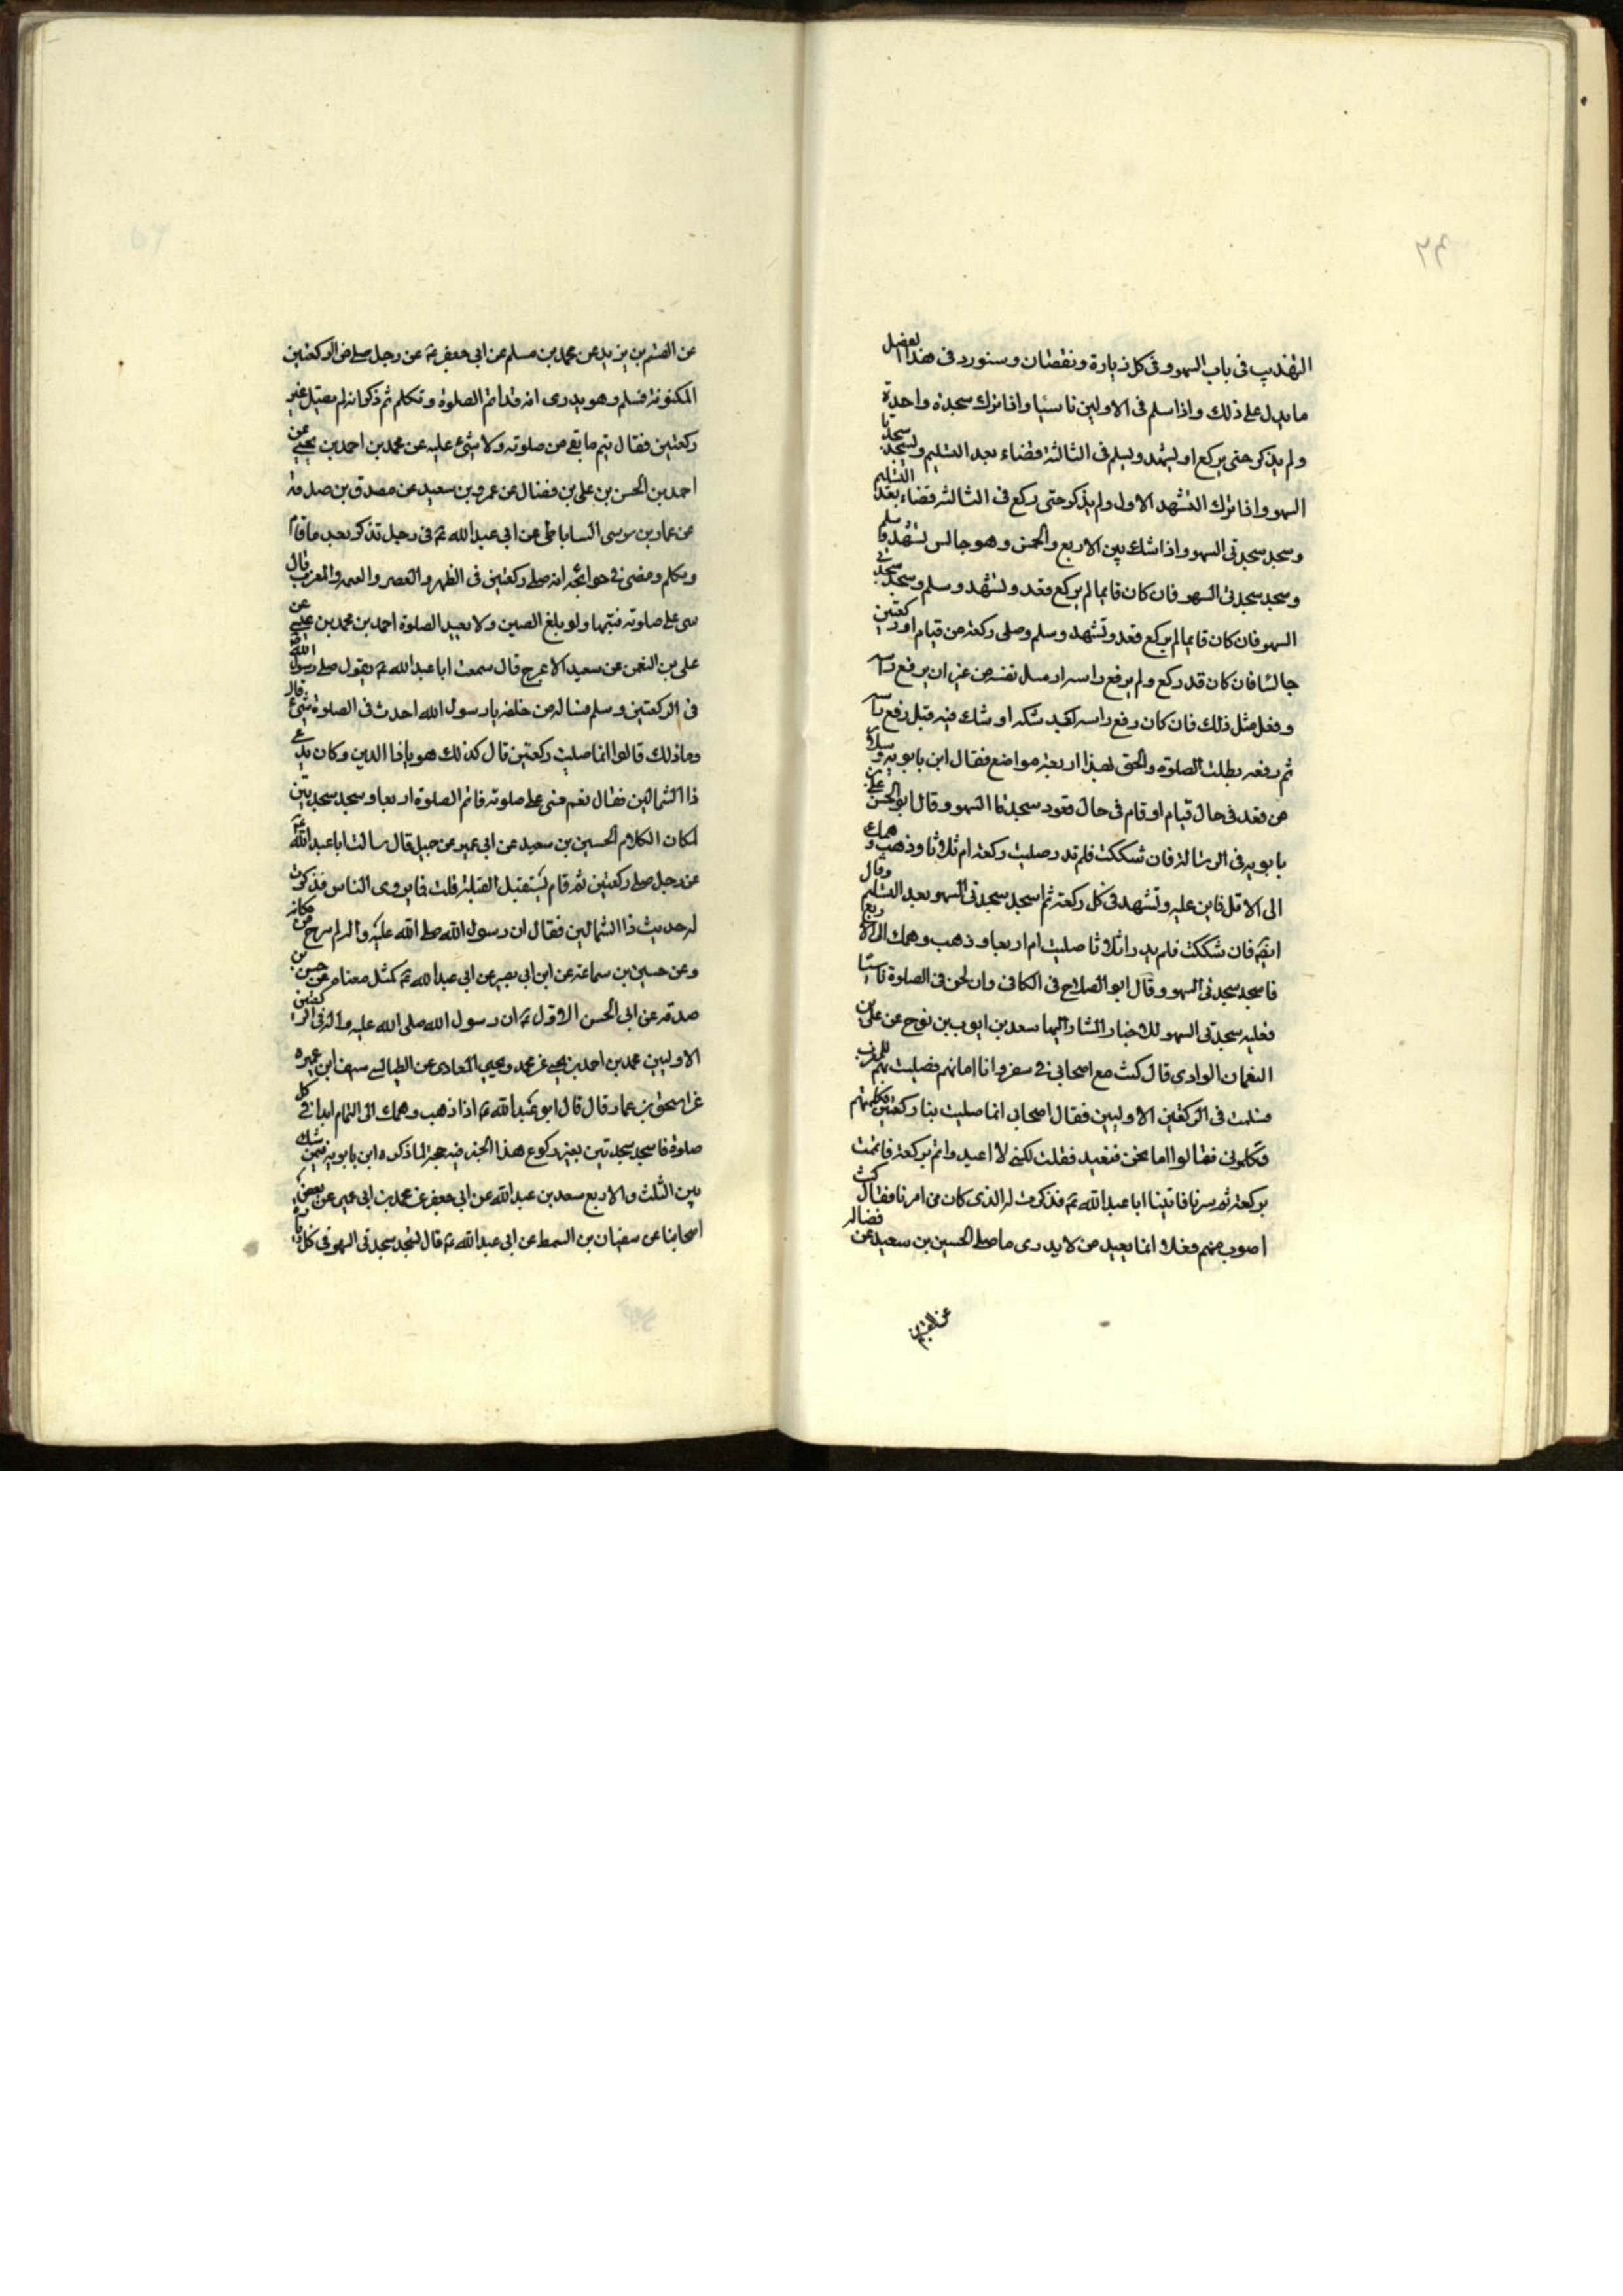 ٢٤
التهذيب فى باب السهو وفى كل زيارة ونقصان وسنورد فى هذا الفصل
ما يدل على ذلك واذا سلم فى الاوليين ناسيا واذا ترك سجدة واحدة
ولم يذكر حتى يركع او يتشهد ويسلم فى الثالثة قضاء بعد التسليم ويسجد سجدتا
السهو واذا ترك التشهد الاول ولم يذكر حتى ركع فى الثالثه قضاء بعد التسليم
وسجد سجدتى السهو واذا شك بين الاربع والخمس وهو جالس تشهد وسلم
وسجد سجدتى السهو فان كان قايما لم يركع فقعد وتشهد وسلم وسجد سجدتى
السهو فان كان قايما لم يركع فقعد وتشهد وسلم وصلى ركعة من قيام او ركعتين
جالسا فان كان قد ركع ولم يرفع راسه ارسل نفسه من غير ان يرفع راسه
وفعل مثل ذلك فان كان رفع راسه بعيد شكه او شك فيه قبل رفع راسه
ثم رفعه بطلت الصلوة والحق بهذا اربعة مواضع فقال ابن بابويه وسلار
من قعد فى حال قيام او قام فى حال قعود سجدتا السهو وقال ابو الحسن على بن
بابويه فى الرسالة فان شككت فلم تدر صليت ركعة ام ثلاثا وذهب وهمك
الى الاقل فابن عليه وتشهد فى كل ركعة ثم اسجد سجدتى السهو بعد التسليم وقال
ايضا فان شككت فلم يدر اثلاثا صليت ام اربعا وذهب وهمك الى الاربع
فاسجد سجدتى السهو وقال ابو الصلاح فى الكافى وان لحن فى الصلوة ناسيا
فعليه سجدتى السهو للاخبار المشار اليها سعد بن ايوب بن نوح عن على بن
النعمان الوادى قال كنت مع اصحابى فى سفر وانا امامهم فصليت بهم المغرب
فسلمت فى الركعتين الاوليين فقال اصحابى انما صليت بنا ركعتين فكلمتهم
فكلمونى فقالوا اما نحن فنعيد فقلت لكنى لا اعيد واتم بركعة فاتممت
بركعة ثم سرنا فاتينا ابا عبدالله ع فذكرت له الذى كان من امرنا فقال كنت
اصوب منهم فعلا انما يعيد من لا يدرى ما صلى الحسين بن سعيد عن فضاله
عن القسم بن
عن القسم بن بريد عن محمد بن مسلم عن ابى جعفر ع عن رجل صلى من الركعتين
المكتوبة فسلم وهو يدرى انه قد اتم الصلوة وتكلم ثم ذكر انه لم يصل غير
ركعتين فقال يتم ما بقى من صلوته ولا شئ عليه عن محمد بن احمد بن يحيى عن
احمد بن الحسن بن على بن فضال عن عمرو بن سعيد عن مصدق بن صدقة
عن عمار بن موسى الساباطى عن ابى عبدالله ع فى رجل تذكر بعد ما قام
وتكلم ومضى فى حوائجه انه صلى ركعتين فى الظهر والعصر والعتمة والمغرب قال
يبنى على صلوته فيتمها ولو بلغ الصين ولا يعيد الصلوة احمد بن محمد بن عيسى عن
على بن النعمن عن سعيد الاعرج قال سمعت ابا عبدالله ع يقول صلى رسول الله ص
فى الركعتين وسلم فساله من خلفه يارسول الله احدث فى الصلوة شئ قال
وماذلك قالوا انما صليت ركعتين قال كذلك هو ياذا اليدين وكان يدعى
ذا الشمالين فقال نعم فبنى على صلوته فاتم الصلوة اربعا وسجد سجدتين
لمكان الكلام الحسين بن سعيد عن ابى عمير عن جميل قال سالت ابا عبدالله ع
عن رجل صلى ركعتين ثم قام يستقبل القبلة قلت فما يروى الناس فذكرت
له حديث ذا الشمالين فقال ان رسول الله صلى الله عليه واله لم يبرح من مكانه
وعن حسين بن سماعة عن ابن ابى بصير عن ابى عبدالله ع كمثل معناه عن حسين بن
صدقه عن ابى الحسن الاول ع ان رسول الله صلى الله عليه واله فى الركعتين
الاوليين محمد بن احمد بن يحيى عن محمد ويحيى المعادى عن الطيالسى سيف ابن عميره
عن اسحق بن عمار قال قال ابو عبدالله ع اذا ذهب وهمك الى التمام ابدا فى كل
صلوة فاسجد سجدتين بغير ركوع هذا الخبر فيه حجة لما ذكره ابن بابويه فيمن شك
بين الثلث والاربع سعد بن عبدالله عن ابى جعفر عن محمد بن ابى عمير عن بعض
اصحابنا عن سفيان بن السمط عن ابى عبدالله ع قال تسجد سجدتى السهو فى كل زيادة